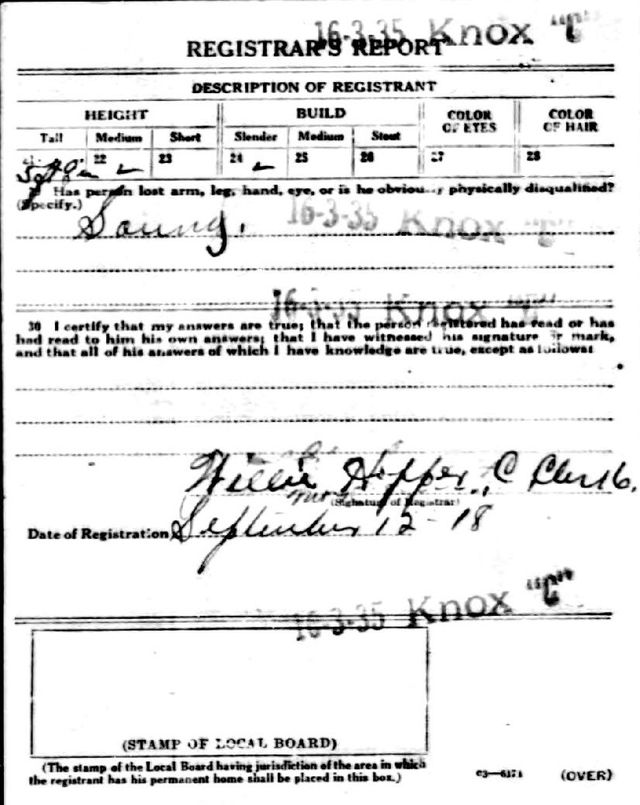 16-3-35 Knox "C"
REGISTRAR'S REPORT
DESCRIPTION OF REGISTRANT
HEIGHT BUILD COLOR OF EYES COLOR OF HAIR
Tall Medium Short Slender Medium Stout
21 22 23 24 25 26 27 28
29 Has person lost arm, leg, hand, eye, or is he obviously physically disqualified?
(Specify.)
16-3-35 Knox "C"
16-3-35 Knox "C"
30 I certify that my answers are true; that the person registered has read or has
had read to him his own answers; that I have witnessed his signature or mark,
and that all of his answers of which I have knowledge are true, except as follows:
Willie
(Signature of Registrar)
Date of Registration September 12-18
16-3-35 Knox "C"
(STAMP OF LOCAL BOARD)
(The stamp of the Local Board having jurisdiction of the area in which
the registrant has his permanent home shall be placed in this box.)
03—6171 (OVER)